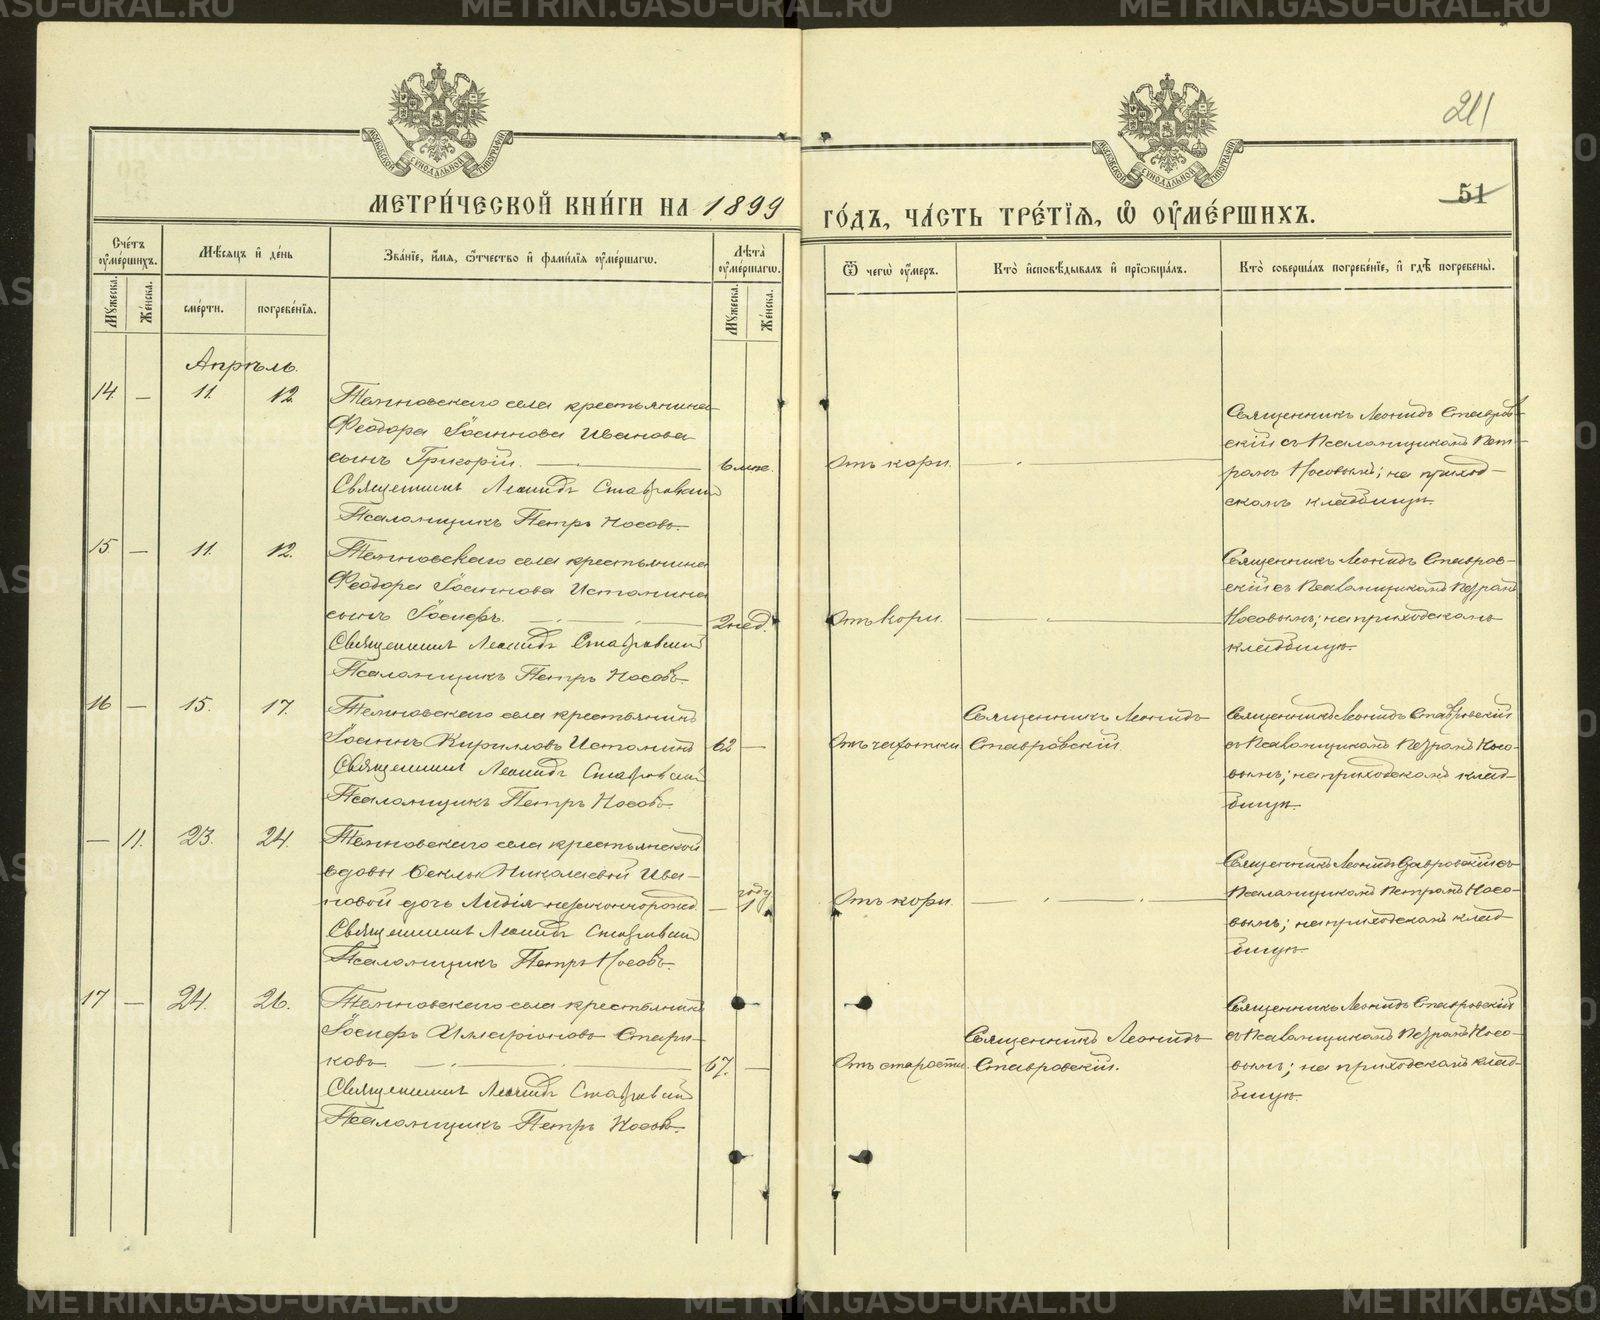 211
51
МОСКОВСКОЙ СѴНОДАЛЬНОЙ ТИПОГРАФІИ
МОСКОВСКОЙ СѴНОДАЛЬНОЙ ТИПОГРАФІИ
МЕТРИ́ЧЕСКОЙ КНИ́ГИ НА 1899 ГО́ДЪ, ЧА́СТЬ ТРЕ́ТІѦ, Ѡ҆ ОУ҆МЕ́РШИХЪ.
Сче́тъ оу҆ме́ршихъ.
Мѣ́сяцъ и҆ де́нь
Зва́ніе, и҆́мя, ѻ҆́тчество и҆ фами́лія оу҆ме́ршагѡ.
Лѣ́та оу҆ме́ршагѡ.
Ѿ чегѡ̀ оу҆́меръ.
Кто̀ и҆сповѣ́дывалъ и҆ прїѡбща́лъ.
Кто̀ соверша́лъ погребе́ніе, и҆ гдѣ̀ погребены̀.
Му́жеска.
Же́нска.
сме́рти.
погребе́нія.
Му́жеска.
Же́нска.
Апрѣль.
14. — 11. 12.
Темновскаго села крестьянина
Ѳеодора Іоаннова Иванова
сынъ Григорій. — 6 мѣс.
Священникъ Леонидъ Ставровскій
Псаломщикъ Петръ Носовъ.
Отъ кори. —
Священникъ Леонидъ Ставров-
скій съ Псаломщикомъ Пет-
ромъ Носовымъ; на приход-
скомъ кладбищѣ.
15. — 11. 12.
Темновскаго села крестьянина
Ѳеодора Іоаннова Истомина
сынъ Іосифъ. — 2 нед.
Священникъ Леонидъ Ставровскій
Псаломщикъ Петръ Носовъ.
Отъ кори. —
Священникъ Леонидъ Ставров-
скій съ Псаломщикомъ Петромъ
Носовымъ; на приходскомъ
кладбищѣ.
16 — 15. 17.
Темновскаго села крестьянинъ
Іоаннъ Кирилловъ Истоминъ 62 —
Священникъ Леонидъ Ставровскій
Псаломщикъ Петръ Носовъ.
Отъ чахотки.
Священникъ Леонидъ
Ставровскій.
Священникъ Леонидъ Ставровскій
съ Псаломщикомъ Петромъ Носо-
вымъ; на приходскомъ клад-
бищѣ.
— 11. 23. 24.
Темновскаго села крестьянской
вдовы Ѳеклы Николаевой Ива-
новой дочь Лидія незаконнорожд. — 1 году
Священникъ Леонидъ Ставровскій
Псаломщикъ Петръ Носовъ.
Отъ кори. —
Священникъ Леонидъ Ставровскій съ
Псаломщикомъ Петромъ Носо-
вымъ; на приходскомъ клад-
бищѣ.
17 — 24. 26.
Темновскаго села крестьянинъ
Іосифъ Иларіоновъ Стари-
ковъ. — 67. —
Священникъ Леонидъ Ставровскій
Псаломщикъ Петръ Носовъ.
Отъ старости.
Священникъ Леонидъ
Ставровскій.
Священникъ Леонидъ Ставровскій
съ Псаломщикомъ Петромъ Носо-
вымъ; на приходскомъ клад-
бищѣ.
METRIKI.GASU-URAL.RU